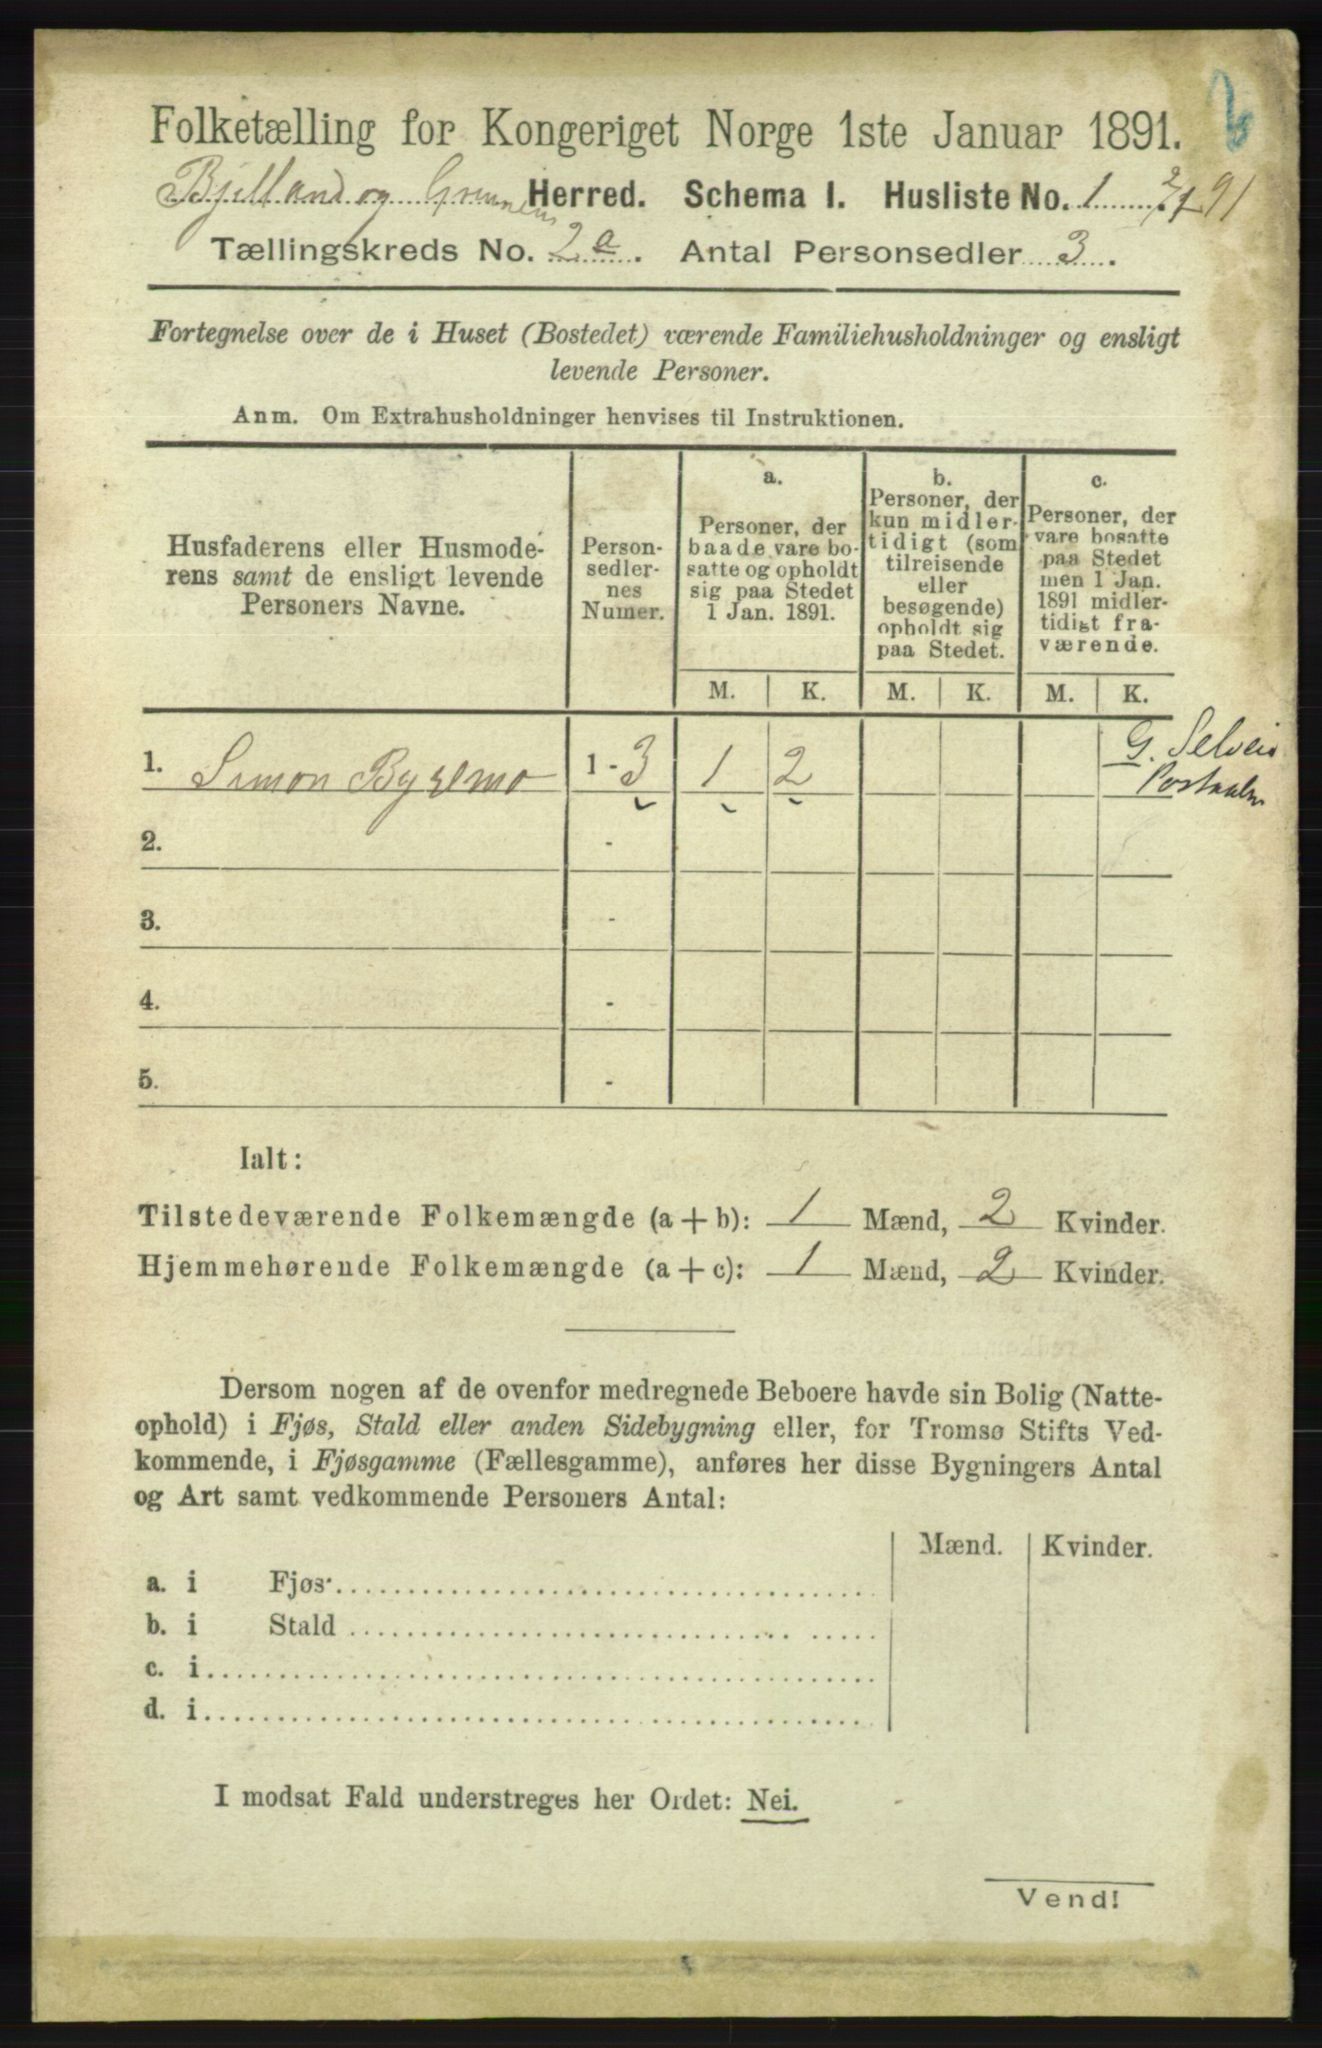 Folketælling for Kongeriget Norge 1ste Januar 1891.
Bjelland og Herred. Schema I. Husliste No. 1 2/1 91
Tællingskreds No. 2a. Antal Personsedler 3.
Fortegnelse over de i Huset (Bostedet) værende Familiehusholdninger og ensligt
levende Personer.
Anm. Om Extrahusholdninger henvises til Instruktionen.
Husfaderens eller Husmode-
rens samt de ensligt levende
Personers Navne.
Person-
sedler-
nes
Numer.
a.
Personer, der
baade vare bo-
satte og opholdt
sig paa Stedet
1 Jan. 1891.
b.
Personer, der
kun midler-
tidigt (som
tilreisende
eller
besøgende)
opholdt sig
paa Stedet.
c.
Personer, der
vare bosatte
paa Stedet
men 1 Jan.
1891 midler-
tidigt fra-
værende.
M. K. M. K. M. K.
1. Simon Bysemo 1 - 3 1 2
G. Selveier
2. -
3. -
4. -
5. -
Ialt:
Tilstedeværende Folkemængde (a + b): 1 Mænd, 2 Kvinder.
Hjemmehørende Folkemængde (a + c): 1 Mænd, 2 Kvinder.
Dersom nogen af de ovenfor medregnede Beboere havde sin Bolig (Natte-
ophold) i Fjøs, Stald eller anden Sidebygning eller, for Tromsø Stifts Ved-
kommende, i Fjøsgamme (Fællesgamme), anføres her disse Bygningers Antal
og Art samt vedkommende Personers Antal:
Mænd. Kvinder.
a. i Fjøs
b. i Stald
c. i
d. i
I modsat Fald understreges her Ordet: Nei.
Vend!